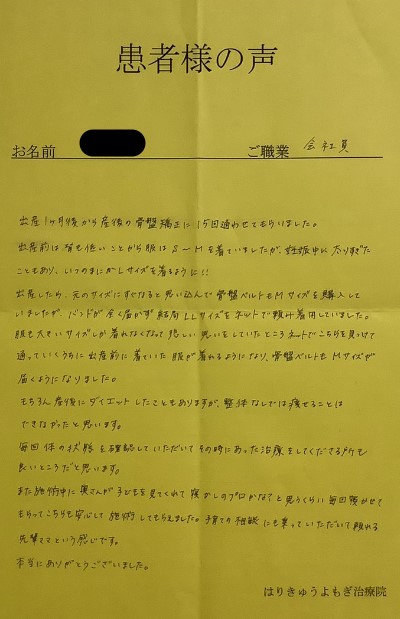 患者様の声
お名前
ご職業 会社員
出産1ヶ月後から産後の骨盤矯正に15回通わせてもらいました。
出産前は背も低いことから服はS〜Mを着ていましたが、妊娠中に太りすぎた
こともあり、いつのまにかLサイズを着るように!!
出産したら、元のサイズにすぐなると思い込んで骨盤ベルトもMサイズを購入して
いましたが、バンドが全く届かず結局LLサイズをネットで頼み着用していました。
服も大きいサイズしか着れなくなって悲しい思いをしていたところネットでこちらを見つけて
通っていくうちに出産前に着ていた服が着れるようになり、骨盤ベルトもMサイズが
届くようになりました。
もちろん産後にダイエットしたこともありますが、整体なしでは痩せることは
できなかったと思います。
毎回体の状態を確認していただいてその時にあった治療をしてくださる所も
良いところだと思います。
また施術中に奥さんが子どもを見てくれて寝かしのプロかな?と思うくらい毎回寝かせて
もらってこちらも安心して施術してもらえました。子育ての相談にも乗っていただいて頼れる
先輩ママという感じです。
本当にありがとうございました。
はりきゅうよもぎ治療院